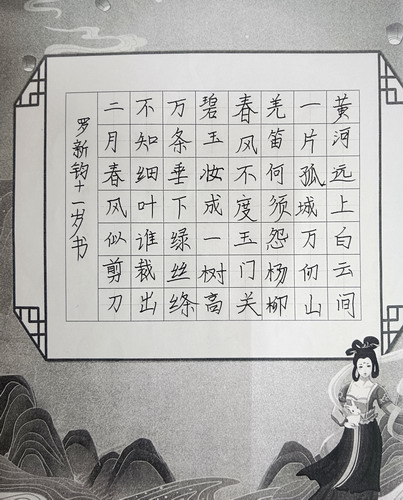 黄河远上白云间
一片孤城万仞山
羌笛何须怨杨柳
春风不度玉门关
碧玉妆成一树高
万条垂下绿丝绦
不知细叶谁裁出
二月春风似剪刀
罗新钧十一岁书